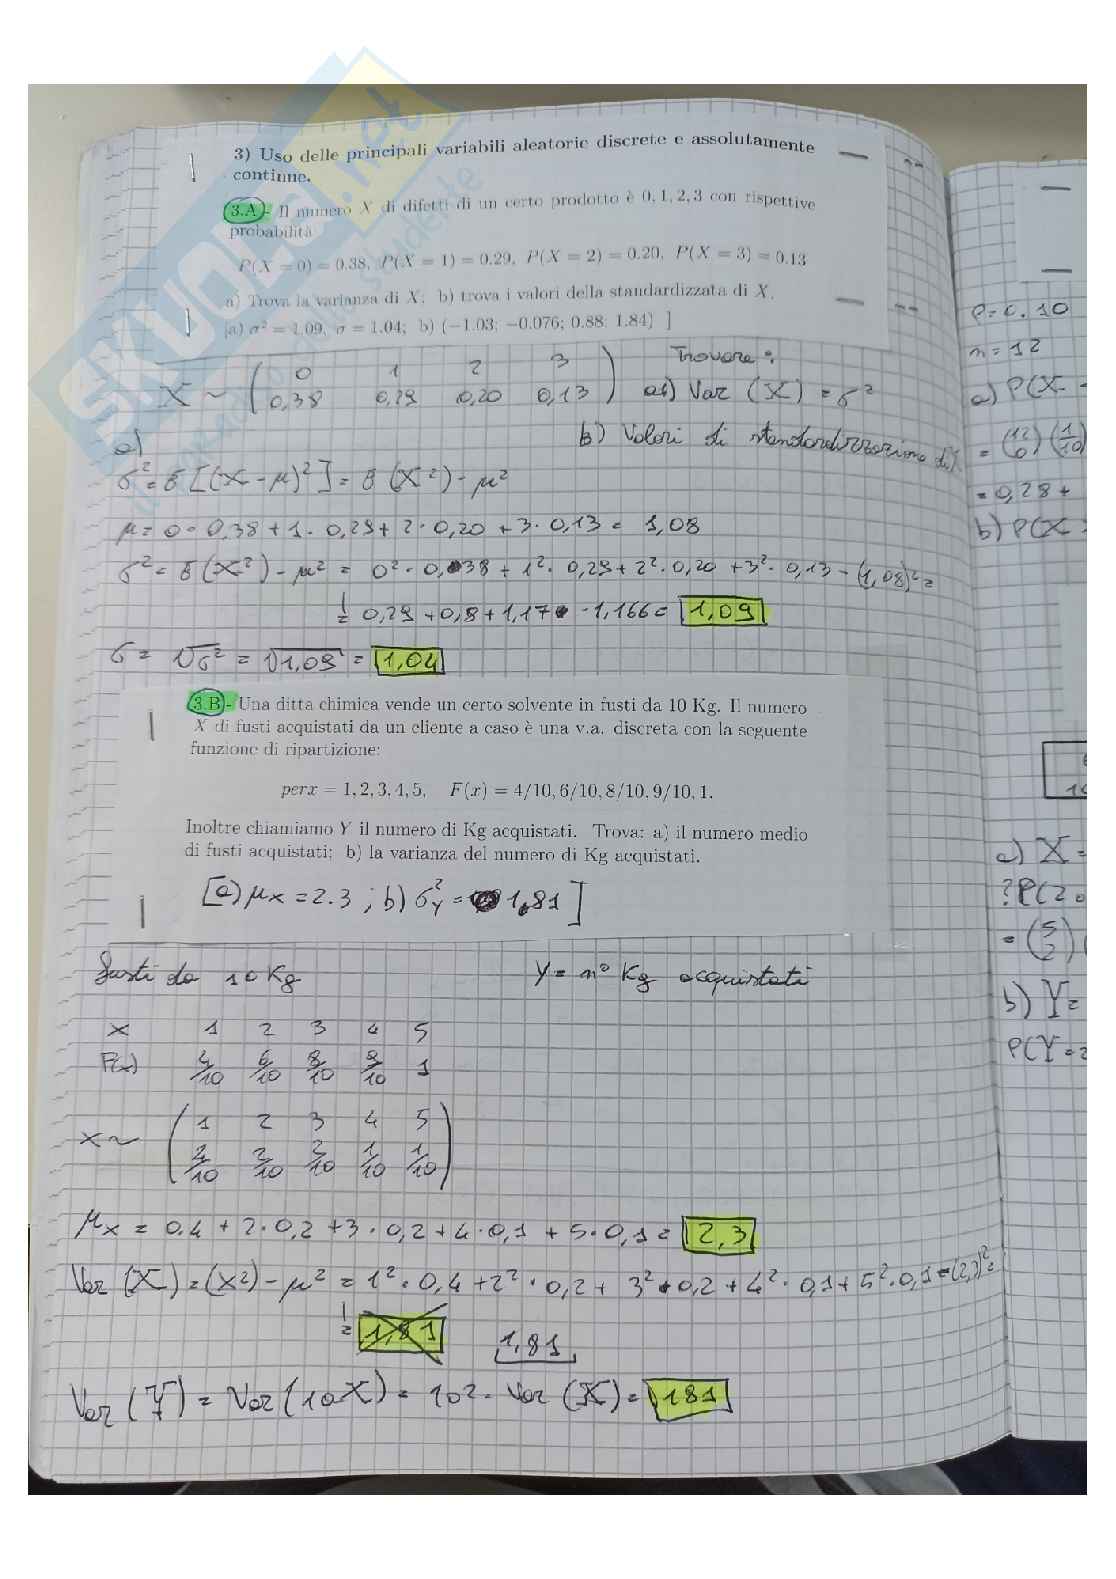 3) Uso delle principali variabili aleatorie discrete e assolutamente
continue.
3.A - Il numero X di difetti di un certo prodotto è 0, 1, 2, 3 con rispettive
probabilità
P(X = 0) = 0.38, P(X = 1) = 0.29, P(X = 2) = 0.20, P(X = 3) = 0.13
a) Trova la varianza di X; b) trova i valori della standardizzata di X.
[a) σ² = 1.09, σ = 1.04; b) (−1.03; −0.076; 0.88; 1.84) ]
X ~ ( 0 1 2 3
0,38 0,29 0,20 0,13 )
Trovare:
a) Var (X) = σ²
b) Valori di standardizzazione di X
a)
σ² = E[(X - μ)²] = E(X²) - μ²
μ = 0 · 0,38 + 1 · 0,29 + 2 · 0,20 + 3 · 0,13 = 1,08
σ² = E(X²) - μ² = 0² · 0,38 + 1² · 0,29 + 2² · 0,20 + 3² · 0,13 - (1,08)² =
= 0,29 + 0,8 + 1,17 - 1,166 = 1,09
σ = √σ² = √1,09 = 1,04
3.B - Una ditta chimica vende un certo solvente in fusti da 10 Kg. Il numero
X di fusti acquistati da un cliente a caso è una v.a. discreta con la seguente
funzione di ripartizione:
perx = 1, 2, 3, 4, 5, F(x) = 4/10, 6/10, 8/10, 9/10, 1.
Inoltre chiamiamo Y il numero di Kg acquistati. Trova: a) il numero medio
di fusti acquistati; b) la varianza del numero di Kg acquistati.
[a) μx = 2.3 ; b) σ²Y = 1,81 ]
Fusti da 10 Kg Y = n° Kg acquistati
x 1 2 3 4 5
F(x) 4/10 6/10 8/10 9/10 1
x ~ ( 1 2 3 4 5
4/10 2/10 2/10 1/10 1/10 )
μx = 0.4 + 2 · 0,2 + 3 · 0,2 + 4 · 0,1 + 5 · 0,1 = 2,3
Var (X) = (x²) - μ² = 1² · 0,4 + 2² · 0,2 + 3² · 0,2 + 4² · 0,1 + 5² · 0,1 - (2,3)² =
= 1,81 1,81
Var (Y) = Var (10X) = 10² · Var (X) = 181
P = 0.10
n = 12
a) P(X
= (12 0) (1/10)
= 0,28 +
b) P(X
a) X =
?P(2
= (5 2) (
b) Y =
P(Y = 2
SKUOLA.net